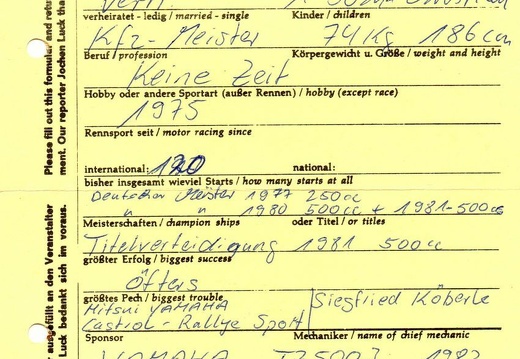 verh.
verheiratet - ledig / married - single Kinder / children
Kfz-Meister 74 Kg 186 cm
Beruf / profession Körpergewicht u. Größe / weight and height
Keine Zeit
Hobby oder andere Sportart (außer Rennen) / hobby (except race)
1975
Rennsport seit / motor racing since
international: 120 national:
bisher insgesamt wieviel Starts / how many starts at all
Deutscher Meister 1977 250cc
" " 1980 500cc + 1981-500cc
Meisterschaften / champion ships oder Titel / or titles
Titelverteidigung 1981 500cc
größter Erfolg / biggest success
Öfters
größtes Pech / biggest trouble
Mitsui YAMAHA Siegfried Köberle
Castrol - Rallye Sport
Sponsor Mechaniker / name of chief mechanic
YAMAHA TZ500J 1982
Please fill out this formular and retur
ment. Our reporter Jochen Luck than
ausgefüllt an den Veranstalter
Luck bedankt sich im voraus.